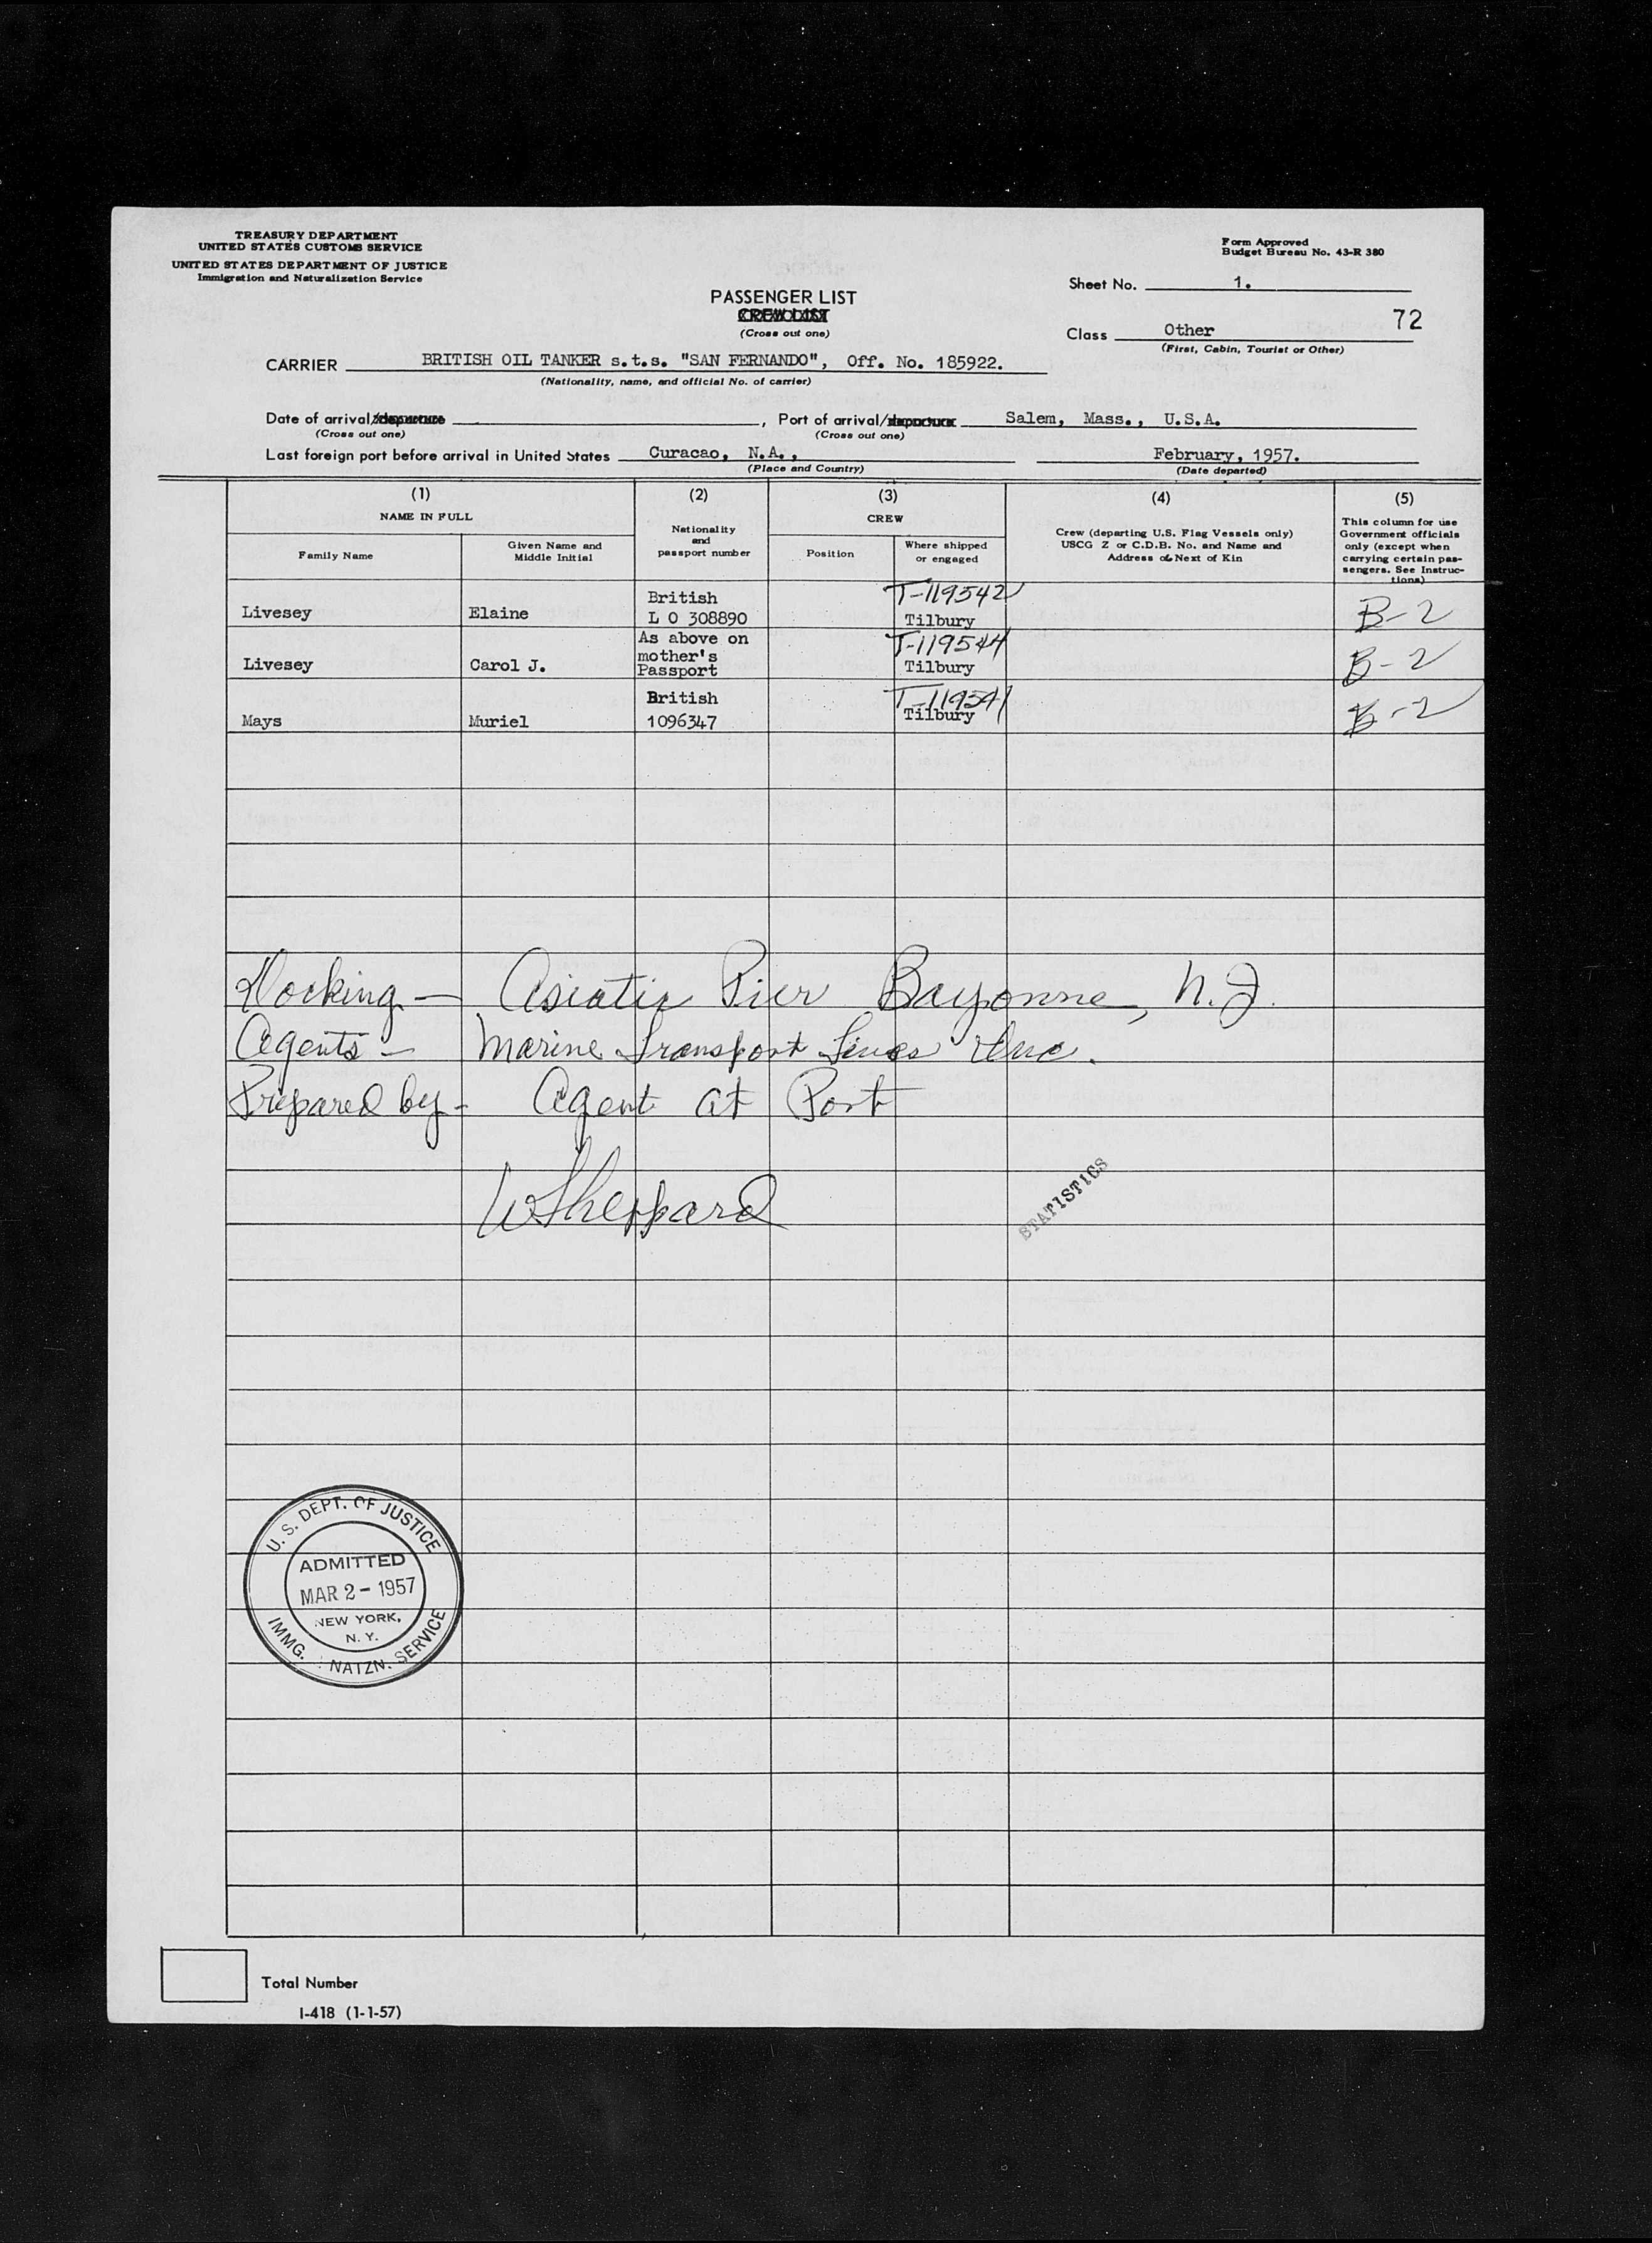 TREASURY DEPARTMENT
UNITED STATES CUSTOMS SERVICE
UNITED STATES DEPARTMENT OF JUSTICE
Immigration and Naturalization Service
Form Approved
Budget Bureau No. 43-R 380
Sheet No. 1.
PASSENGER LIST
CREW LIST
(Cross out one)
72
Class Other
(First, Cabin, Tourist or Other)
CARRIER BRITISH OIL TANKER s.t.s. "SAN FERNANDO", Off. No. 185922.
(Nationality, name, and official No. of carrier)
Date of arrival/departure , Port of arrival/departure Salem, Mass., U.S.A.
(Cross out one) (Cross out one)
Last foreign port before arrival in United States Curacao, N.A., February, 1957.
(Place and Country) (Date departed)
(1) (2) (3) (4) (5)
NAME IN FULL
Family Name
Given Name and
Middle Initial
Nationality
and
passport number
CREW
Position
Where shipped
or engaged
Crew (departing U.S. Flag Vessels only)
USCG Z or C.D.B. No. and Name and
Address of Next of Kin
This column for use
Government officials
only (except when
carrying certain pas-
sengers. See Instruc-
tions)
British T-119542
Livesey Elaine L O 308890 Tilbury B-2
As above on T-119544
mother's
Livesey Carol J. Passport Tilbury B-2
British T-119541
Mays Muriel 1096347 Tilbury B-2
Docking - Asiatic Pier Bayonne, N.J.
Agents - Marine Transport Lines Inc.
Prepared by - Agent at Port
WSheppard
STATISTICS
U.S. DEPT. OF JUSTICE
ADMITTED
MAR 2 - 1957
NEW YORK,
N. Y.
IMMG. NATZN. SERVICE
Total Number
I-418 (1-1-57)